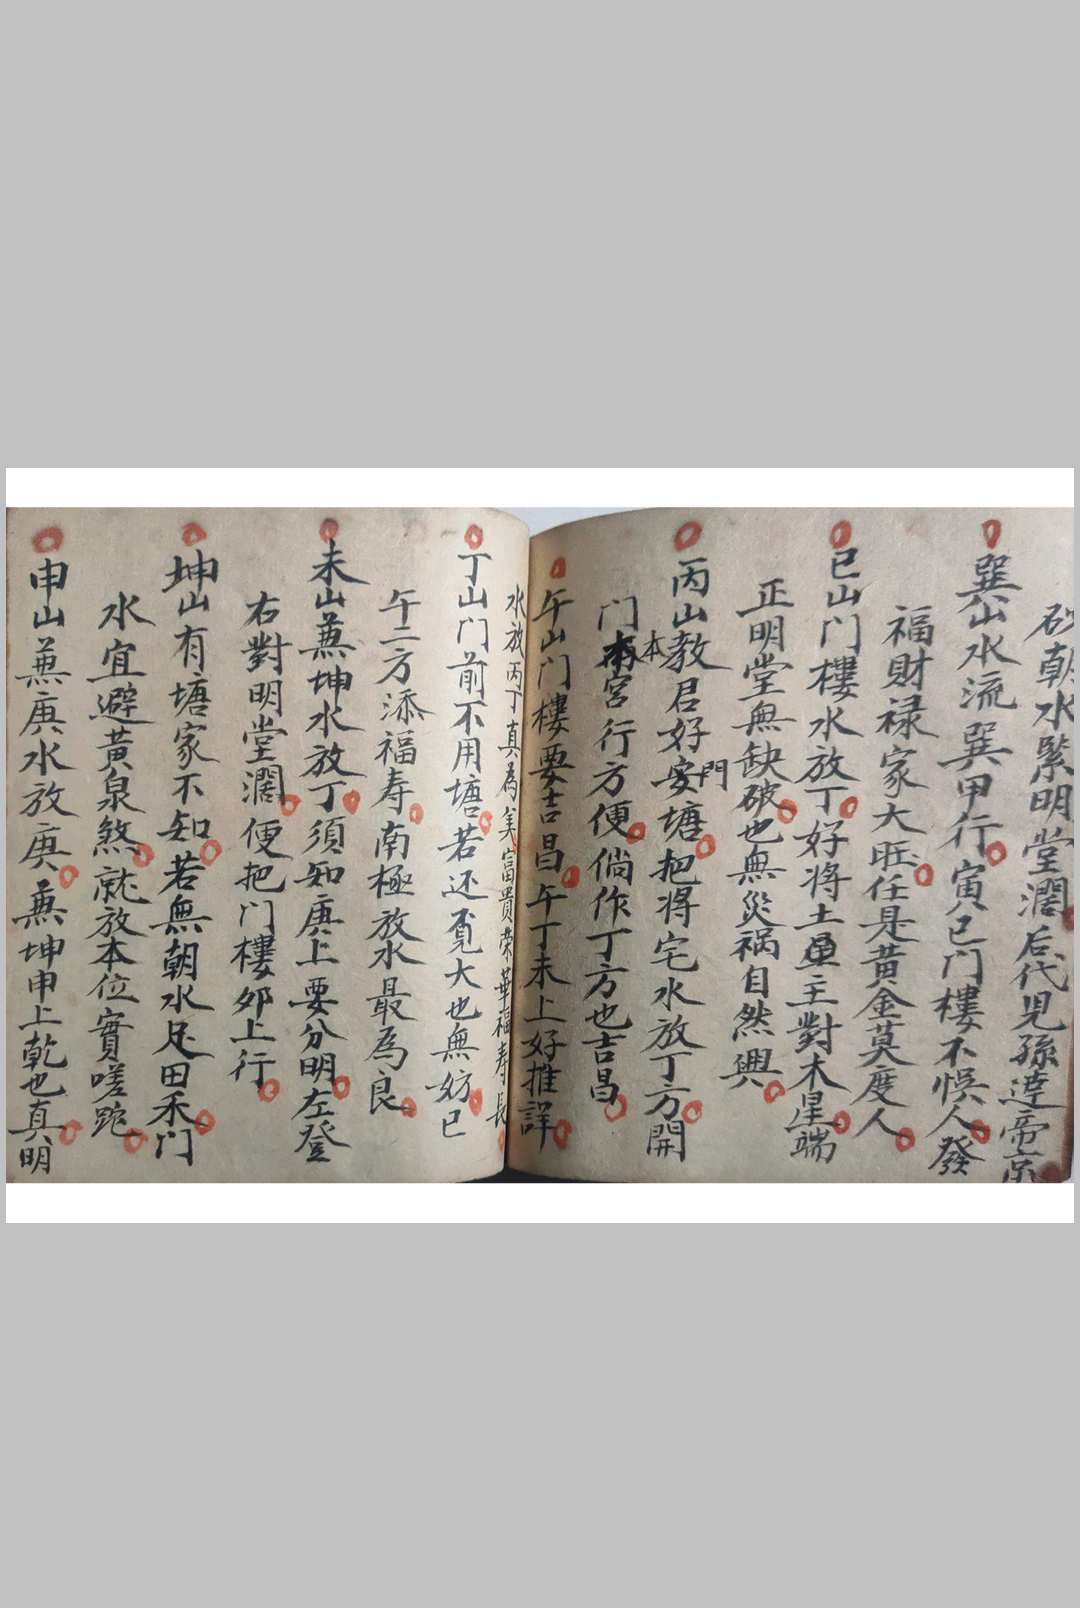 砂朝水緊明堂濶后代児孫達帝京
巽山水流巽甲行寅巳門樓不悞人發
福財禄家大旺任是黄金莫度人
巳山门樓水放丁好将土星主對木星端
正明堂無缺破也無災禍自然興
丙山教君好安塘把将宅水放丁方開
門
本
门本宮行方便倘作丁方也吉昌
午山门樓要吉昌午丁未上好推詳
水放丙丁真為美富貴荣華福寿長
丁山门前不用塘若还寛大也無妨巳
午二方添福寿南極放水最為良
未山兼坤水放丁須知庚上要分明左登
右對明堂濶便把门樓卯上行
坤山有塘家不知若無朝水足田禾门
水宜避黄泉煞就放本位實嗟跎
申山兼庚水放庚兼坤申上乾也真明